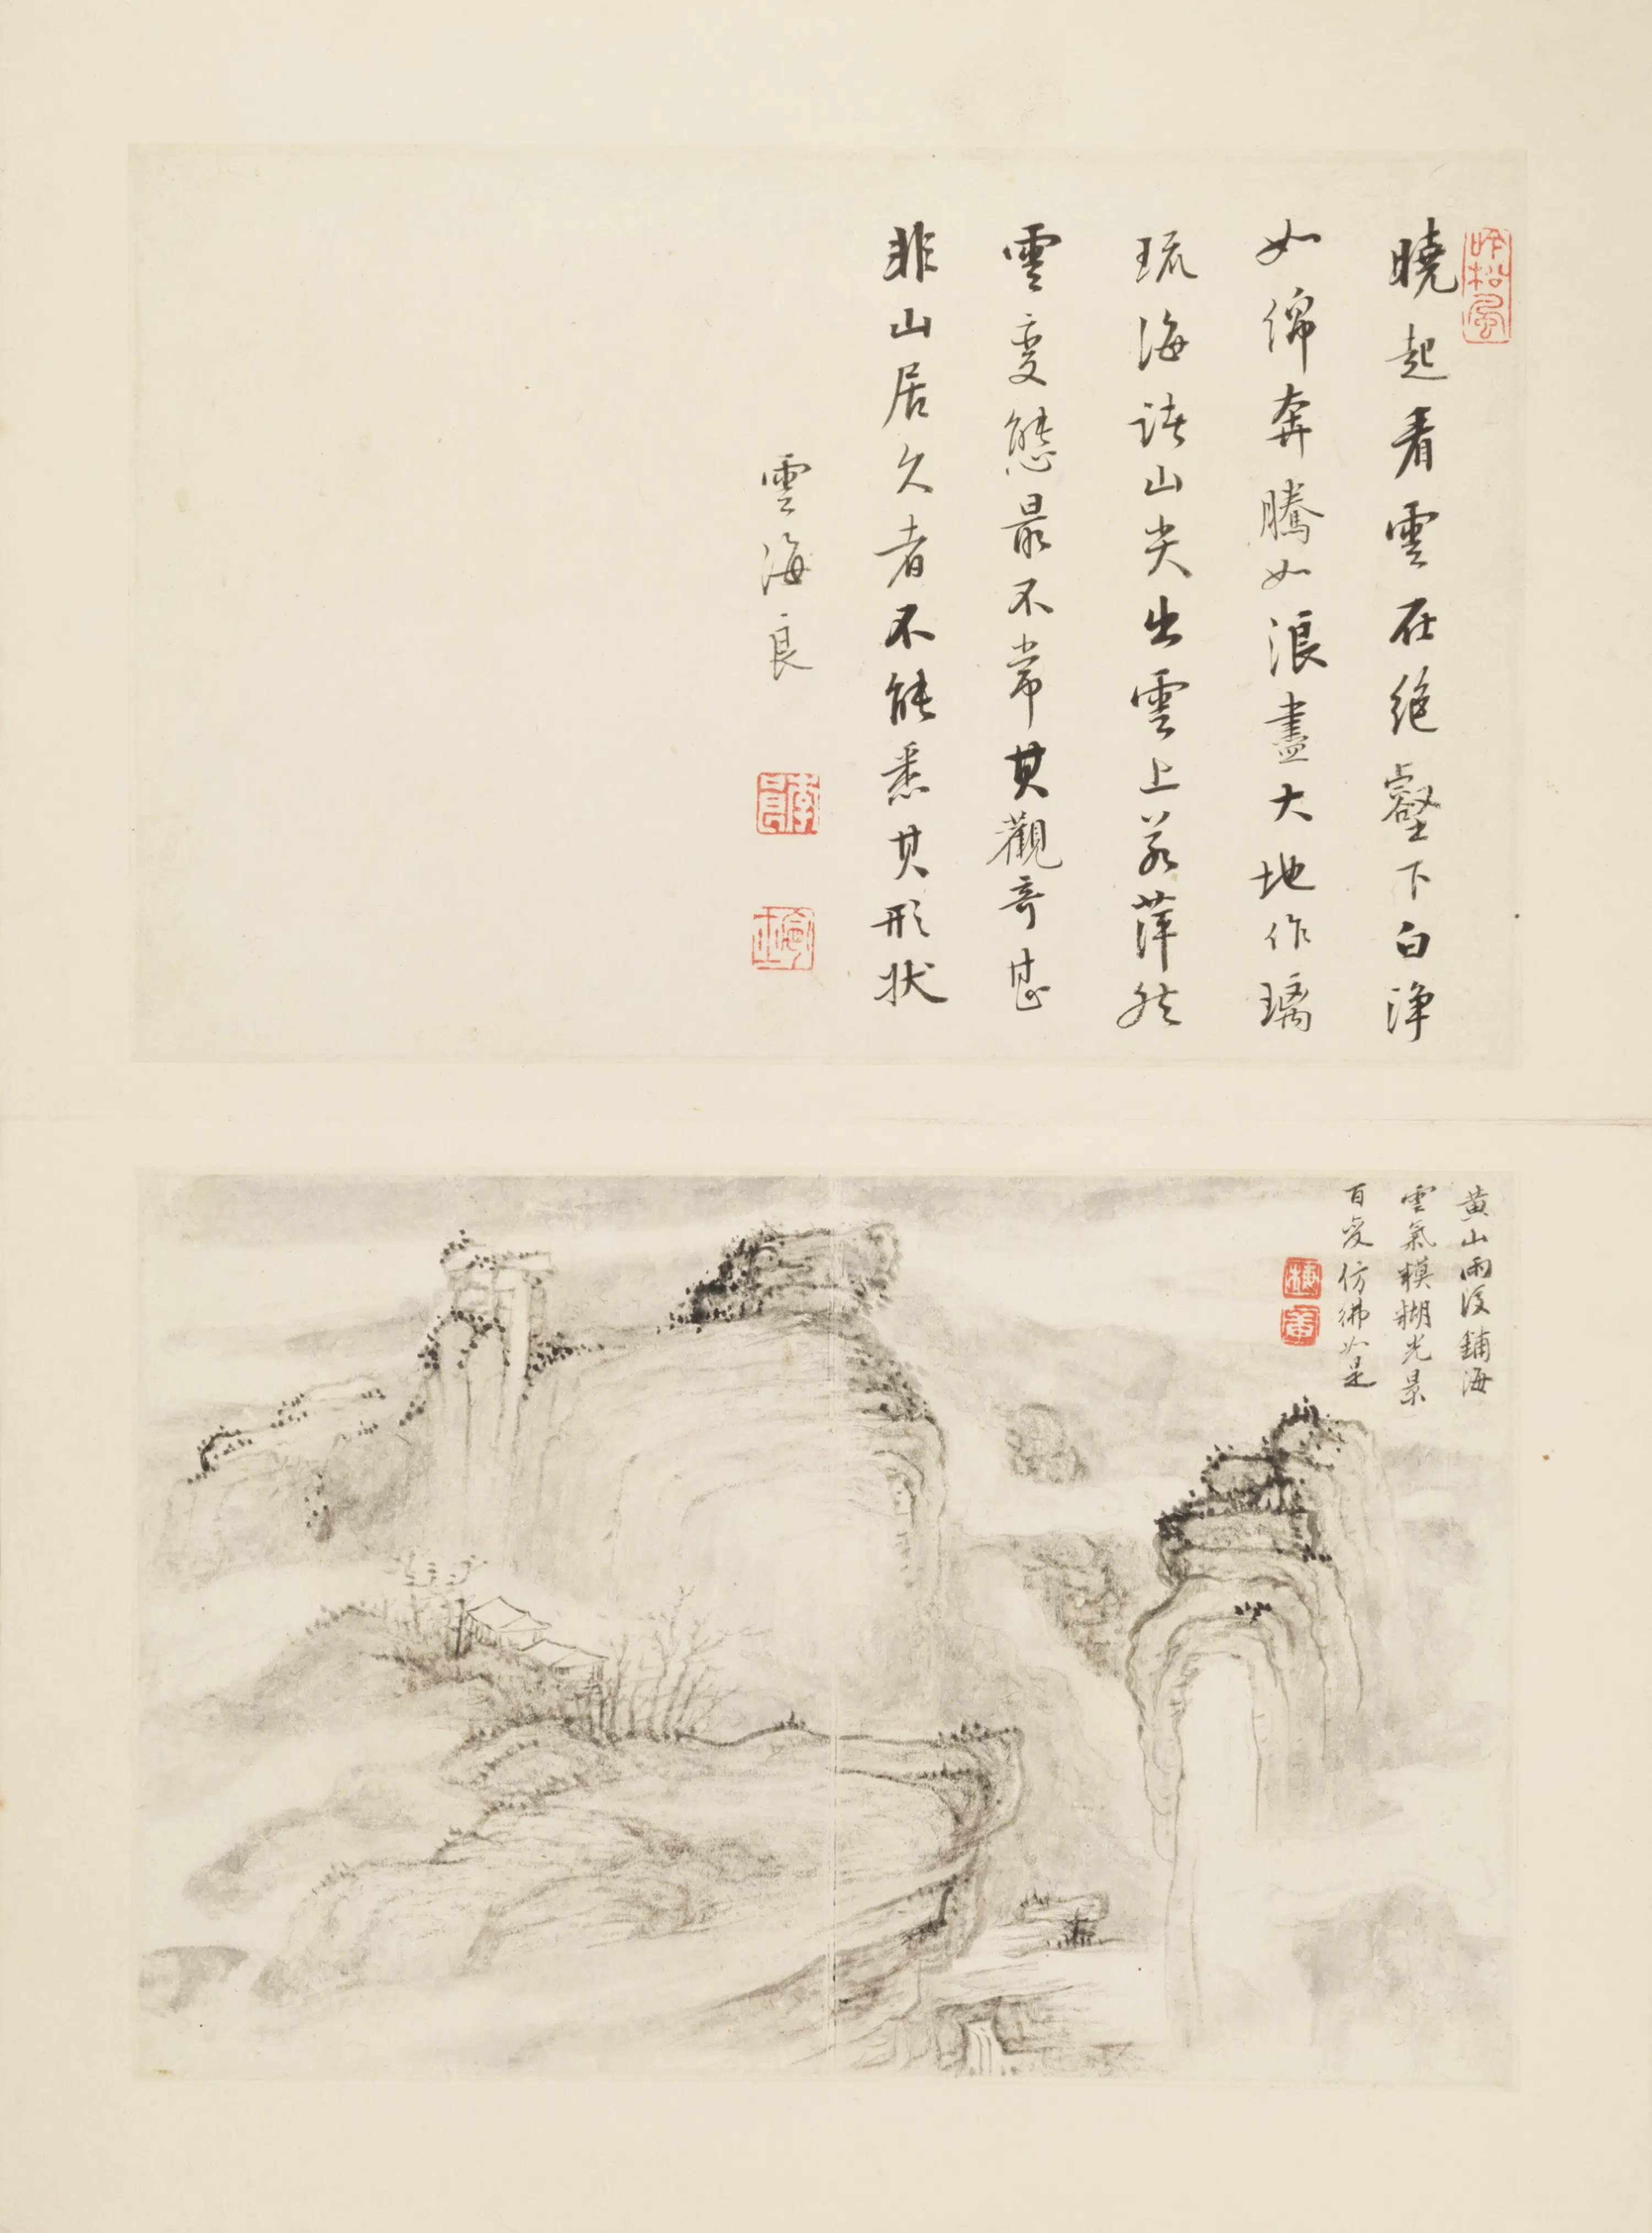 吟松風
曉起看雲在絕壑下白淨
如綿奔騰如浪盡大地作璃
琉海諸山尖出雲上若萍然
雲變態最不常其觀奇甚
非山居久者不能悉其形狀
雲海良
黃山雨後鋪海
雲氣模糊光景
百變仿彿如是